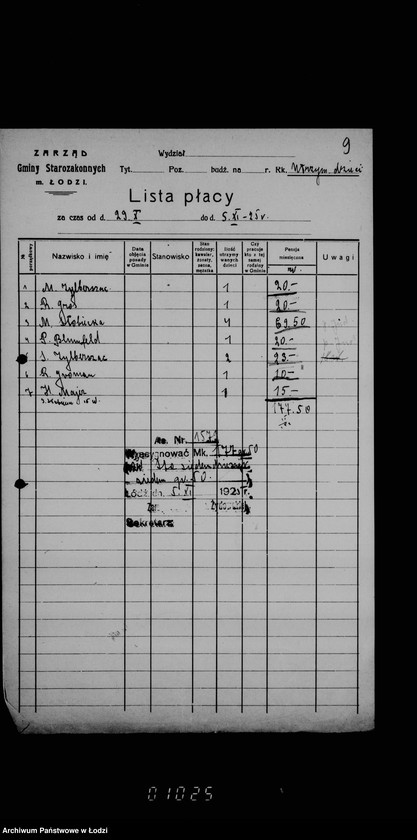 9
ZARZĄD
Gminy Starozakonnych
m. ŁODZI.
Wydział
Tyt. Poz. budż. na r. Rk. Utrzym. dzieci
Lista płacy
za czas od d. 29. X do d. 5. XI-25 r.
№ porządkowy Nazwisko i imię Data objęcia posady w Gminie Stanowisko Stan rodzinny: kawaler, żonaty, panna, mężatka Ilość utrzymywanych dzieci Czy pracuje kto z tej samej rodziny w Gminie Pensja miesięczna Uwagi
1 M. Zylberszac 1 20.-
2 R. 1 20.-
3 M. 4 69.50
4 P. Blumfeld 1 20.-
5 S. Zylberszac 2 23.-
6 R. 1 10.-
7 H. Majer 1 15.-
177.50
As. Nr. 157
Wyasygnować Mk. 177 50
Sto siedemdziesiąt
siedem 50
Łódź, dn. 5. XI 1925 r.
Sekretarz
01025
Archiwum Państwowe w Łodzi